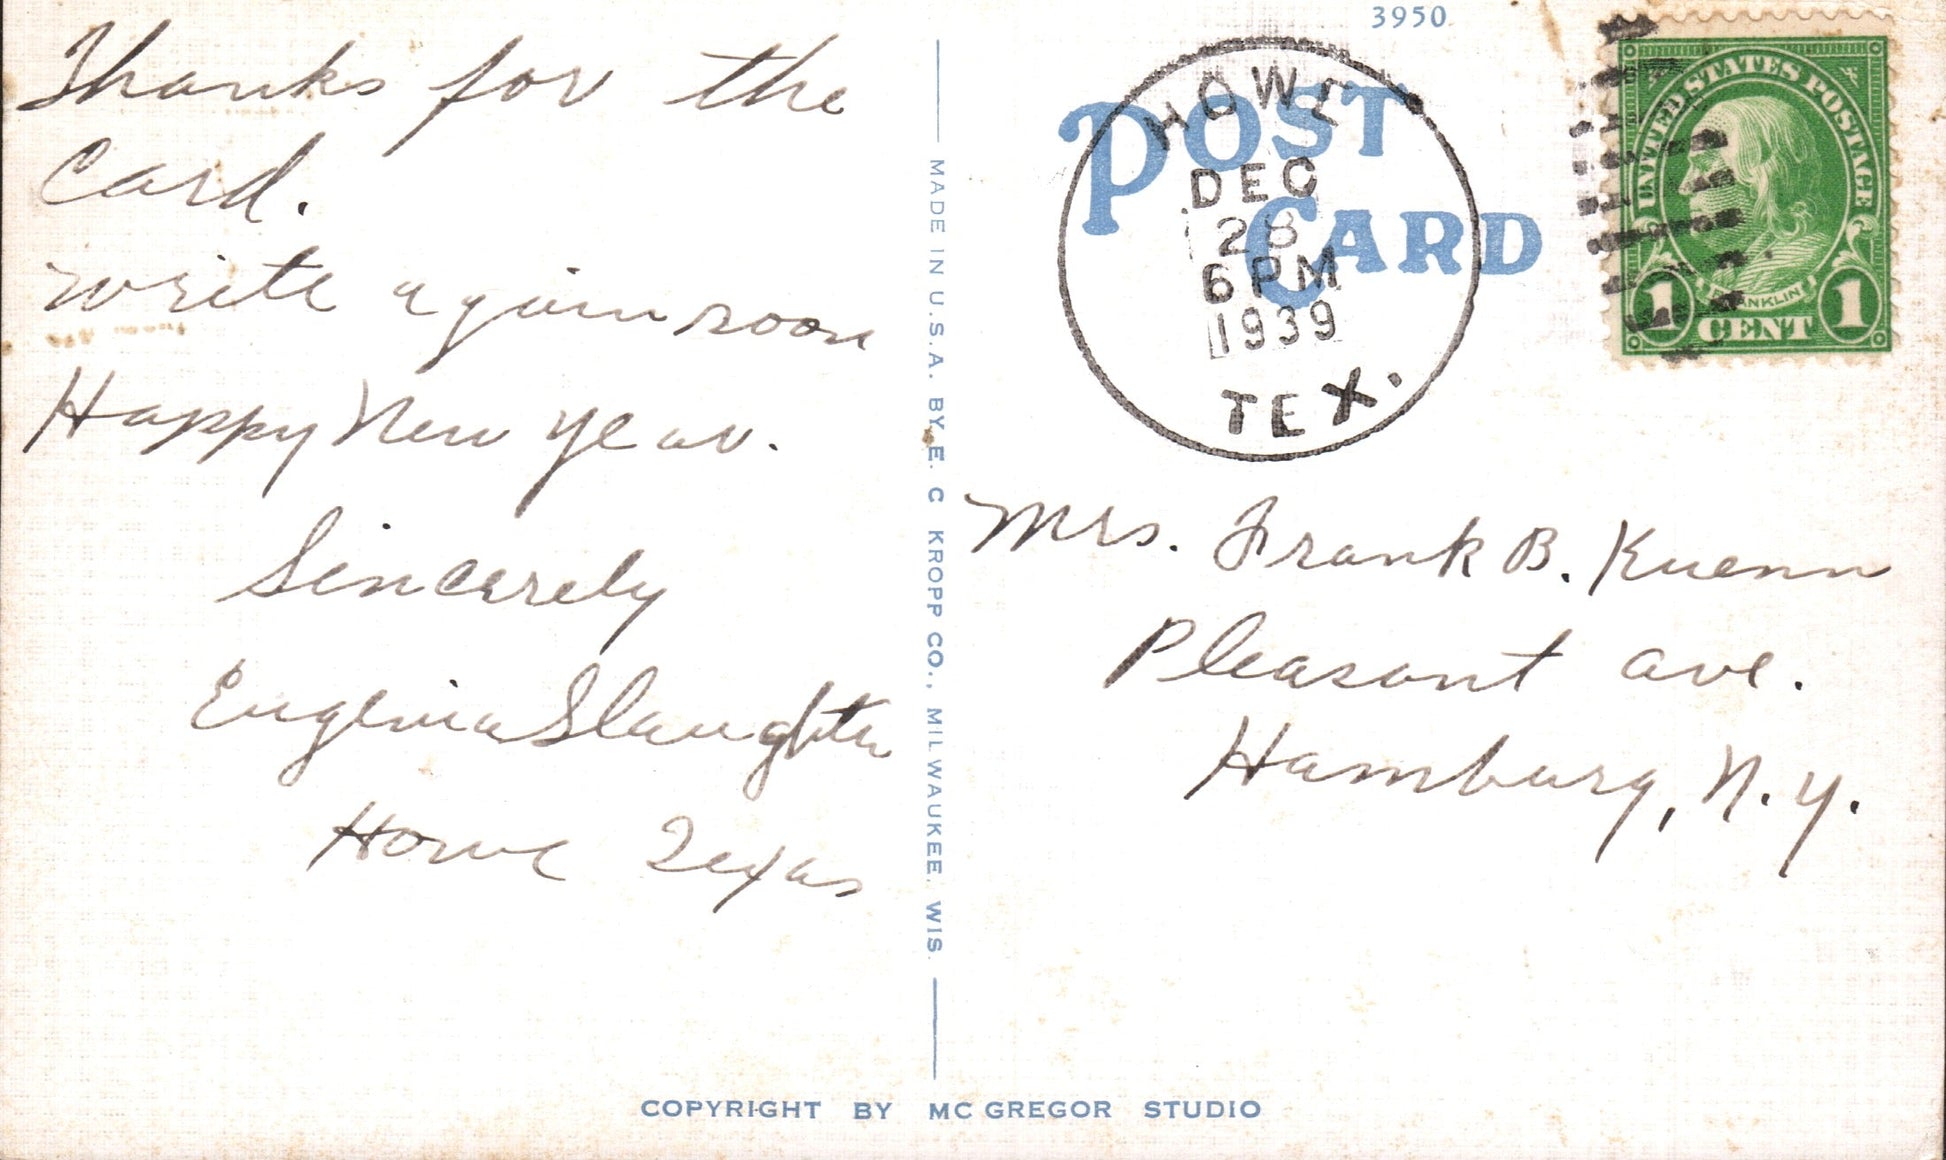 Thanks for the
Card.
write again soon
Happy New Year.
Sincerely
Eugenia Slaughter
Howe Texas
MADE IN U.S.A. BY E. C. KROPP CO., MILWAUKEE, WIS.
3950
POST
CARD
HOWE
DEC
28
6 PM
1939
TEX.
UNITED STATES POSTAGE
FRANKLIN
1 CENT 1
Mrs. Frank B. Kuenn
Pleasant ave.
Hamburg, N.Y.
COPYRIGHT BY MC GREGOR STUDIO